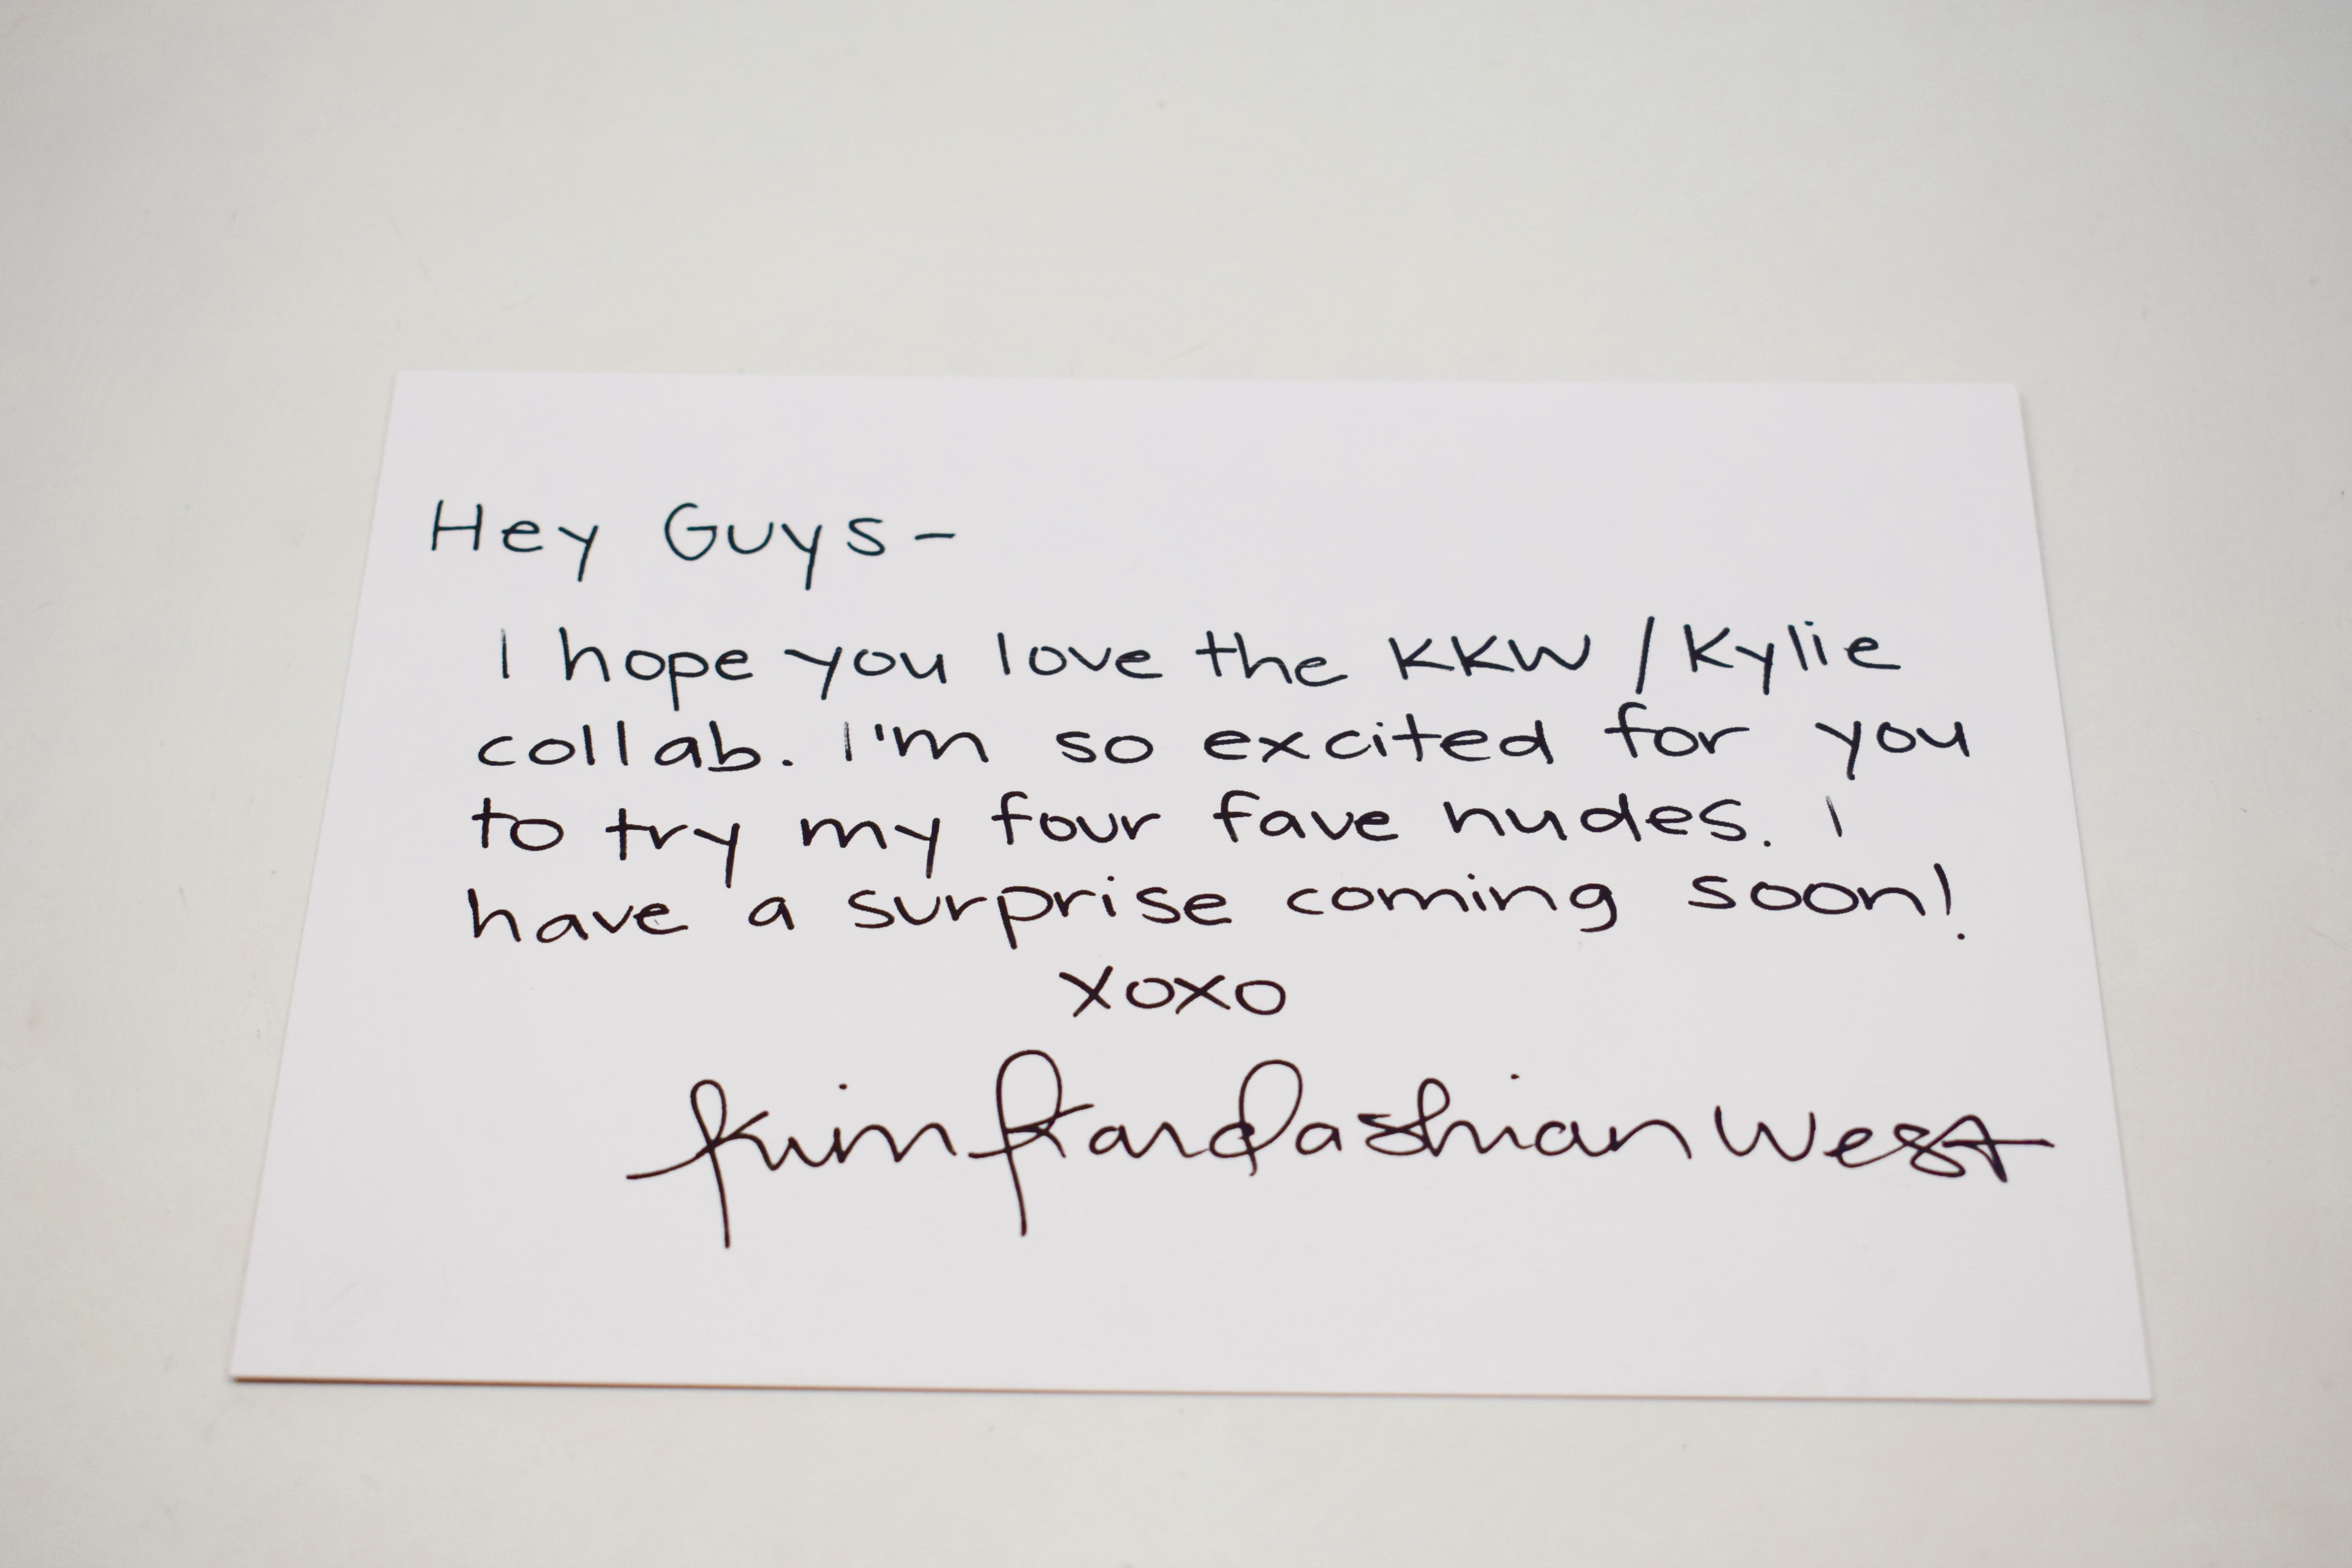 Hey Guys-
I hope you love the KKW / Kylie
collab. I'm so excited for you
to try my four fave nudes. I
have a surprise coming soon!
xoxo
Kim Kardashian West